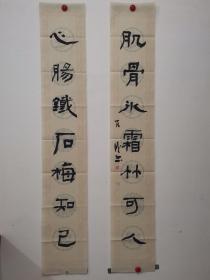 肌骨冰霜竹可人
心腸鐵石梅知己